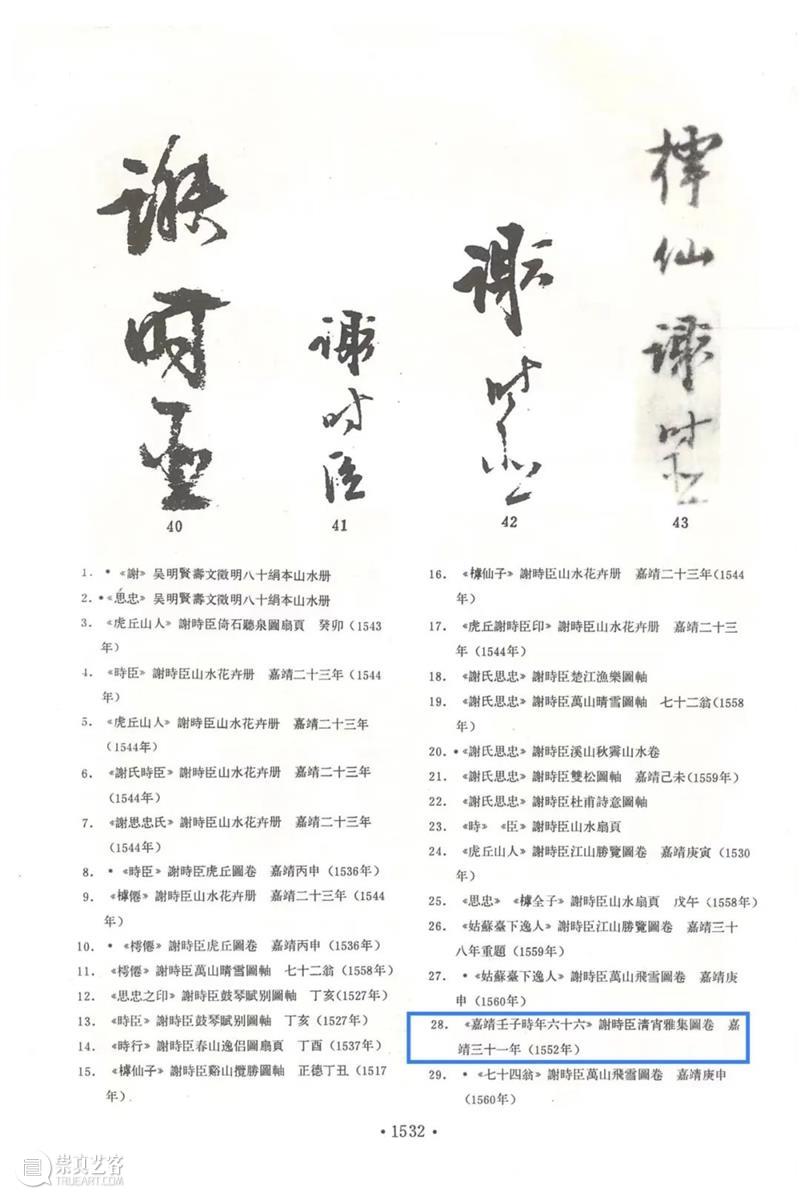 謝時臣
40
謝時臣
41
謝時臣
42
樗仙謝時臣
43
1. •《謝》吳明賢壽文徵明八十絹本山水册
2. •《思忠》吳明賢壽文徵明八十絹本山水册
3. 《虎丘山人》謝時臣倚石聽泉圖扇頁 癸卯(1543
年)
4. 《時臣》謝時臣山水花卉册 嘉靖二十三年(1544
年)
5. 《虎丘山人》謝時臣山水花卉册 嘉靖二十三年
(1544年)
6. 《謝氏時臣》謝時臣山水花卉册 嘉靖二十三年
(1544年)
7. 《謝思忠氏》謝時臣山水花卉册 嘉靖二十三年
(1544年)
8. •《時臣》謝時臣虎丘圖卷 嘉靖丙申(1536年)
9. 《樗僊》謝時臣山水花卉册 嘉靖二十三年(1544
年)
10. •《樗僊》謝時臣虎丘圖卷 嘉靖丙申(1536年)
11. 《樗僊》謝時臣萬山晴雪圖軸 七十二翁(1558年)
12. 《思忠之印》謝時臣鼓琴賦別圖軸 丁亥(1527年)
13. 《時臣》謝時臣鼓琴賦別圖軸 丁亥(1527年)
14. 《時行》謝時臣春山逸侣圖扇頁 丁酉(1537年)
15. 《樗仙子》謝時臣谿山攬勝圖軸 正德丁丑(1517
年)
16. 《樗仙子》謝時臣山水花卉册 嘉靖二十三年(1544
年)
17. 《虎丘謝時臣印》謝時臣山水花卉册 嘉靖二十三
年(1544年)
18. 《謝氏思忠》謝時臣楚江漁樂圖軸
19. 《謝氏思忠》謝時臣萬山晴雪圖軸 七十二翁(1558
年)
20. •《謝氏思忠》謝時臣溪山秋霽山水卷
21. 《謝氏思忠》謝時臣雙松圖軸 嘉靖己未(1559年)
22. 《謝氏思忠》謝時臣杜甫詩意圖軸
23. 《時》《臣》謝時臣山水扇頁
24. 《虎丘山人》謝時臣江山勝覽圖卷 嘉靖庚寅(1530
年)
25. 《思忠》《樗全子》謝時臣山水扇頁 戊午(1558年)
26. 《姑蘇臺下逸人》謝時臣江山勝覽圖卷 嘉靖三十
八年重題(1559年)
27. •《姑蘇臺下逸人》謝時臣萬山飛雪圖卷 嘉靖庚
申(1560年)
28. 《嘉靖壬子時年六十六》謝時臣清宵雅集圖卷 嘉
靖三十一年(1552年)
29. •《七十四翁》謝時臣萬山飛雪圖卷 嘉靖庚申
(1560年)
•1532•
崇真艺客